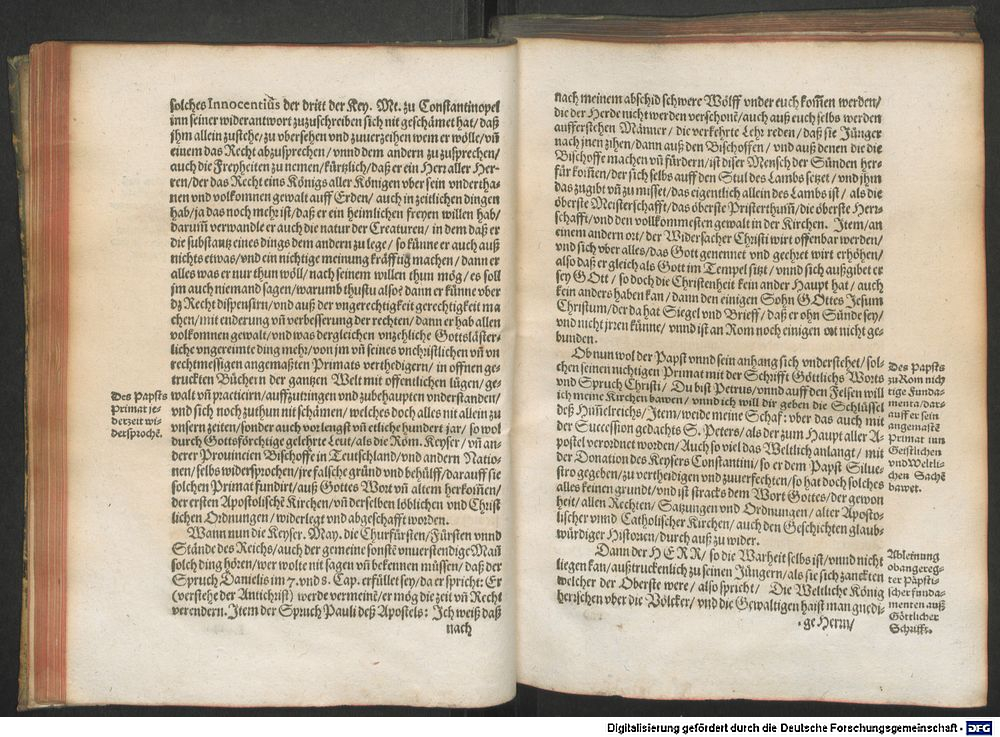 solches Innocentius der dritt der Key. Mt. zu Constantinopel
inn seiner widerantwort zuzuschreiben sich nit geschämet hat/ daß
jhm allein zustehe/ zu vbersehen vnd zuuerzeihen wem er wölle/ vñ
einem das Recht abzusprechen/ vnnd dem andern zu zusprechen/
auch die Freyheiten zu nemen/ kürtzlich/ daß er ein Herr aller Her-
ren/ der das Recht eins Königs aller Königen vber sein vndertha-
nen vnd volkomnen gewalt auff Erden/ auch in zeitlichen dingen
hab/ ja das noch mehr ist/ daß er ein heimlichen freyen willen hab/
darum̃ verwandle er auch die natur der Creaturen/ in dem daß er
die substantz eines dings dem andern zu lege/ so künne er auch auß
nichts etwas/ vnd ein nichtige meinung kräfftig machen/ dann er
alles was er nur thun wöll/ nach seinem willen thun mög/ es soll
jm auch niemand sagen/ warumb thustu also? dann er künne vber
dz Recht dispensirn/ vnd auß der vngerechtigkeit gerechtigkeit ma
chen/ mit enderung vñ verbesserung der rechten/ dann er hab allen
volkomnen gewalt/ vnd was dergleichen vnzehliche Gottsläster-
liche vngereimte ding mehr/ von jm vñ seines vnchristlichen vñ vn
rechtmessigen angemaßten Primats verthedigern/ in offnen ge-
truckten Büchern der gantzen Welt mit offentlichen lügen/ ge-
walt vñ practicirn/ auffzutringen vnd zubehaupten vnderstanden/
vnd sich noch zuthun nit schämen/ welches doch alles nit allein zu
vnsern zeiten/ sonder auch vorlengst vñ etliche hundert jar/ so wol
durch Gottsförchtige gelehrte Leut/ als die Röm. Keyser/ vñ an-
derer Prouincien Bischoffe in Teutschland/ vnd andern Natio-
nen/ selbs widersprochen/ jre falsche gründ vnd behülff/ darauff sie
solchen Primat fundirt/ auß Gottes Wort vñ altem herkom̃en/
der ersten Apostolischẽ Kirchen/ vñ derselben löblichen vnd Christ
lichen Ordnungen/ widerlegt vnd abgeschafft worden.
Wann nun die Keyser. May. die Churfürsten/ Fürsten vnnd
Stände des Reichs/ auch der gemeine sonstẽ vnuerstendige Mañ
solch ding hören/ wer wolte nit sagen vñ bekennen müssen/ daß der
Spruch Danielis im 7. vnd 8. Cap. erfüllet sey/ da er spricht: Er
(verstehe der Antichrist) werde vermeinẽ/ er mög die zeit vñ Recht
verendern. Item der Spruch Pauli deß Apostels: Ich weiß daß
nach
Des Papsts
Primat je-
derzeit wi-
dersprochẽ.
nach meinem abschid schwere Wölff vnder euch kom̃en werden/
die der Herde nicht werden verschonẽ/ auch auß euch selbs werden
aufferstehen Männer/ die verkehrte Lehr reden/ daß sie Jünger
nach jnen zihen/ dann auß den Bischoffen/ vnd auß denen die die
Bischoffe machen vñ fürdern/ ist diser Mensch der Sünden her-
für kom̃en/ der sich selbs auff den Stul des Lambs setzet/ vnd jhm
das zugibt vñ zu misset/ das eigentlich allein des Lambs ist/ als die
öberste Meisterschafft/ das öberste Pristerthum̃/ die öberste Herr-
schafft/ vnd den vollkommesten gewalt in der Kirchen. Item/ an
einem andern ort/ der Widersacher Christi wirt offenbar werden/
vnd sich vber alles/ das Gott genennet vnd geehret wirt erhöhen/
also daß er gleich als Gott im Tempel sitzt/ vnnd sich außgibet er
sey GOtt/ so doch die Christenheit kein ander Haupt hat/ auch
kein anders haben kan/ dann den einigen Sohn GOttes Jesum
Christum/ der da hat Siegel vnd Brieff/ daß er ohn Sünde sey/
vnd nicht jrren künne/ vnnd ist an Rom noch einigen ort nicht ge-
bunden.
Ob nun wol der Papst vnnd sein anhang sich vnderstehet/ sol-
chen seinen nichtigen Primat mit der Schrifft Göttlichs Worts
vnd Spruch Christi/ Du bist Petrus/ vnnd auff den Felsen will
ich meine Kirchen bawen/ vnnd ich will dir geben die Schlüssel
deß Him̃elreichs/ Item/ weide meine Schaf: vber das auch mit
der Succession gedachts S. Peters/ als der zum Haupt aller A-
postel verordnet worden/ Auch so viel das Weltlich anlangt/ mit
der Donation des Keysers Constantini/ so er dem Papst Silue-
stro gegeben/ zu vertheidigen vnd zuuerfechten/ so hat doch solches
alles keinen grundt/ vnd ist stracks dem Wort Gottes/ der gewon
heit/ allen Rechten/ Satzungen vnd Ordnungen/ alter Aposto-
lischer vnnd Catholischer Kirchen/ auch den Geschichten glaub-
würdiger Historien/ durch auß zu wider.
Dann der HERR/ so die Warheit selbs ist/ vnnd nicht
liegen kan/ außtruckenlich zu seinen Jüngern/ als sie sich zanckten
welcher der Oberste were/ also spricht/ Die Weltliche König
herrschen vber die Völcker/ vnd die Gewaltigen haist man gnedi-
ge Herrn/
Des Papsts
zu Rom nich
tige Funda-
menta/ dar-
auff er sein
angemastẽ
Primat inn
Geistlichen
vnd Weltli-
chen Sachẽ
bawet.
Ableinung
obangereg-
ter Päpsti-
scher funda-
menten auß
Göttlicher
Schrifft.
Digitalisierung gefördert durch die Deutsche Forschungsgemeinschaft - DFG